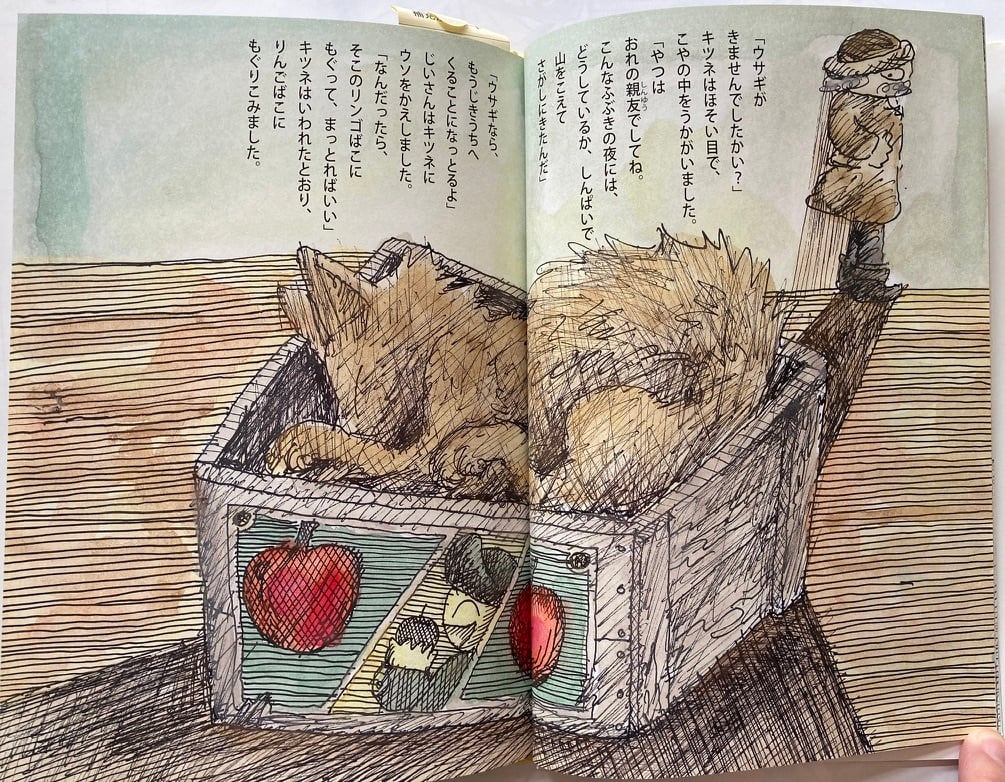 「ウサギが
きませんでしたかい？」
キツネはほそい目で、
こやの中をうかがいました。
「やつは
おれの親友でしてね。
しんゆう
こんなふぶきの夜には、
どうしているか、しんぱいで
山をこえて
さがしにきたんだ」
「ウサギなら、
もうじきうちへ
くることになっとるよ」
じいさんはキツネに
ウソをかえしました。
「なんだったら、
そこのリンゴばこに
もぐって、まっとればいい」
キツネはいわれたとおり、
りんごばこに
もぐりこみました。